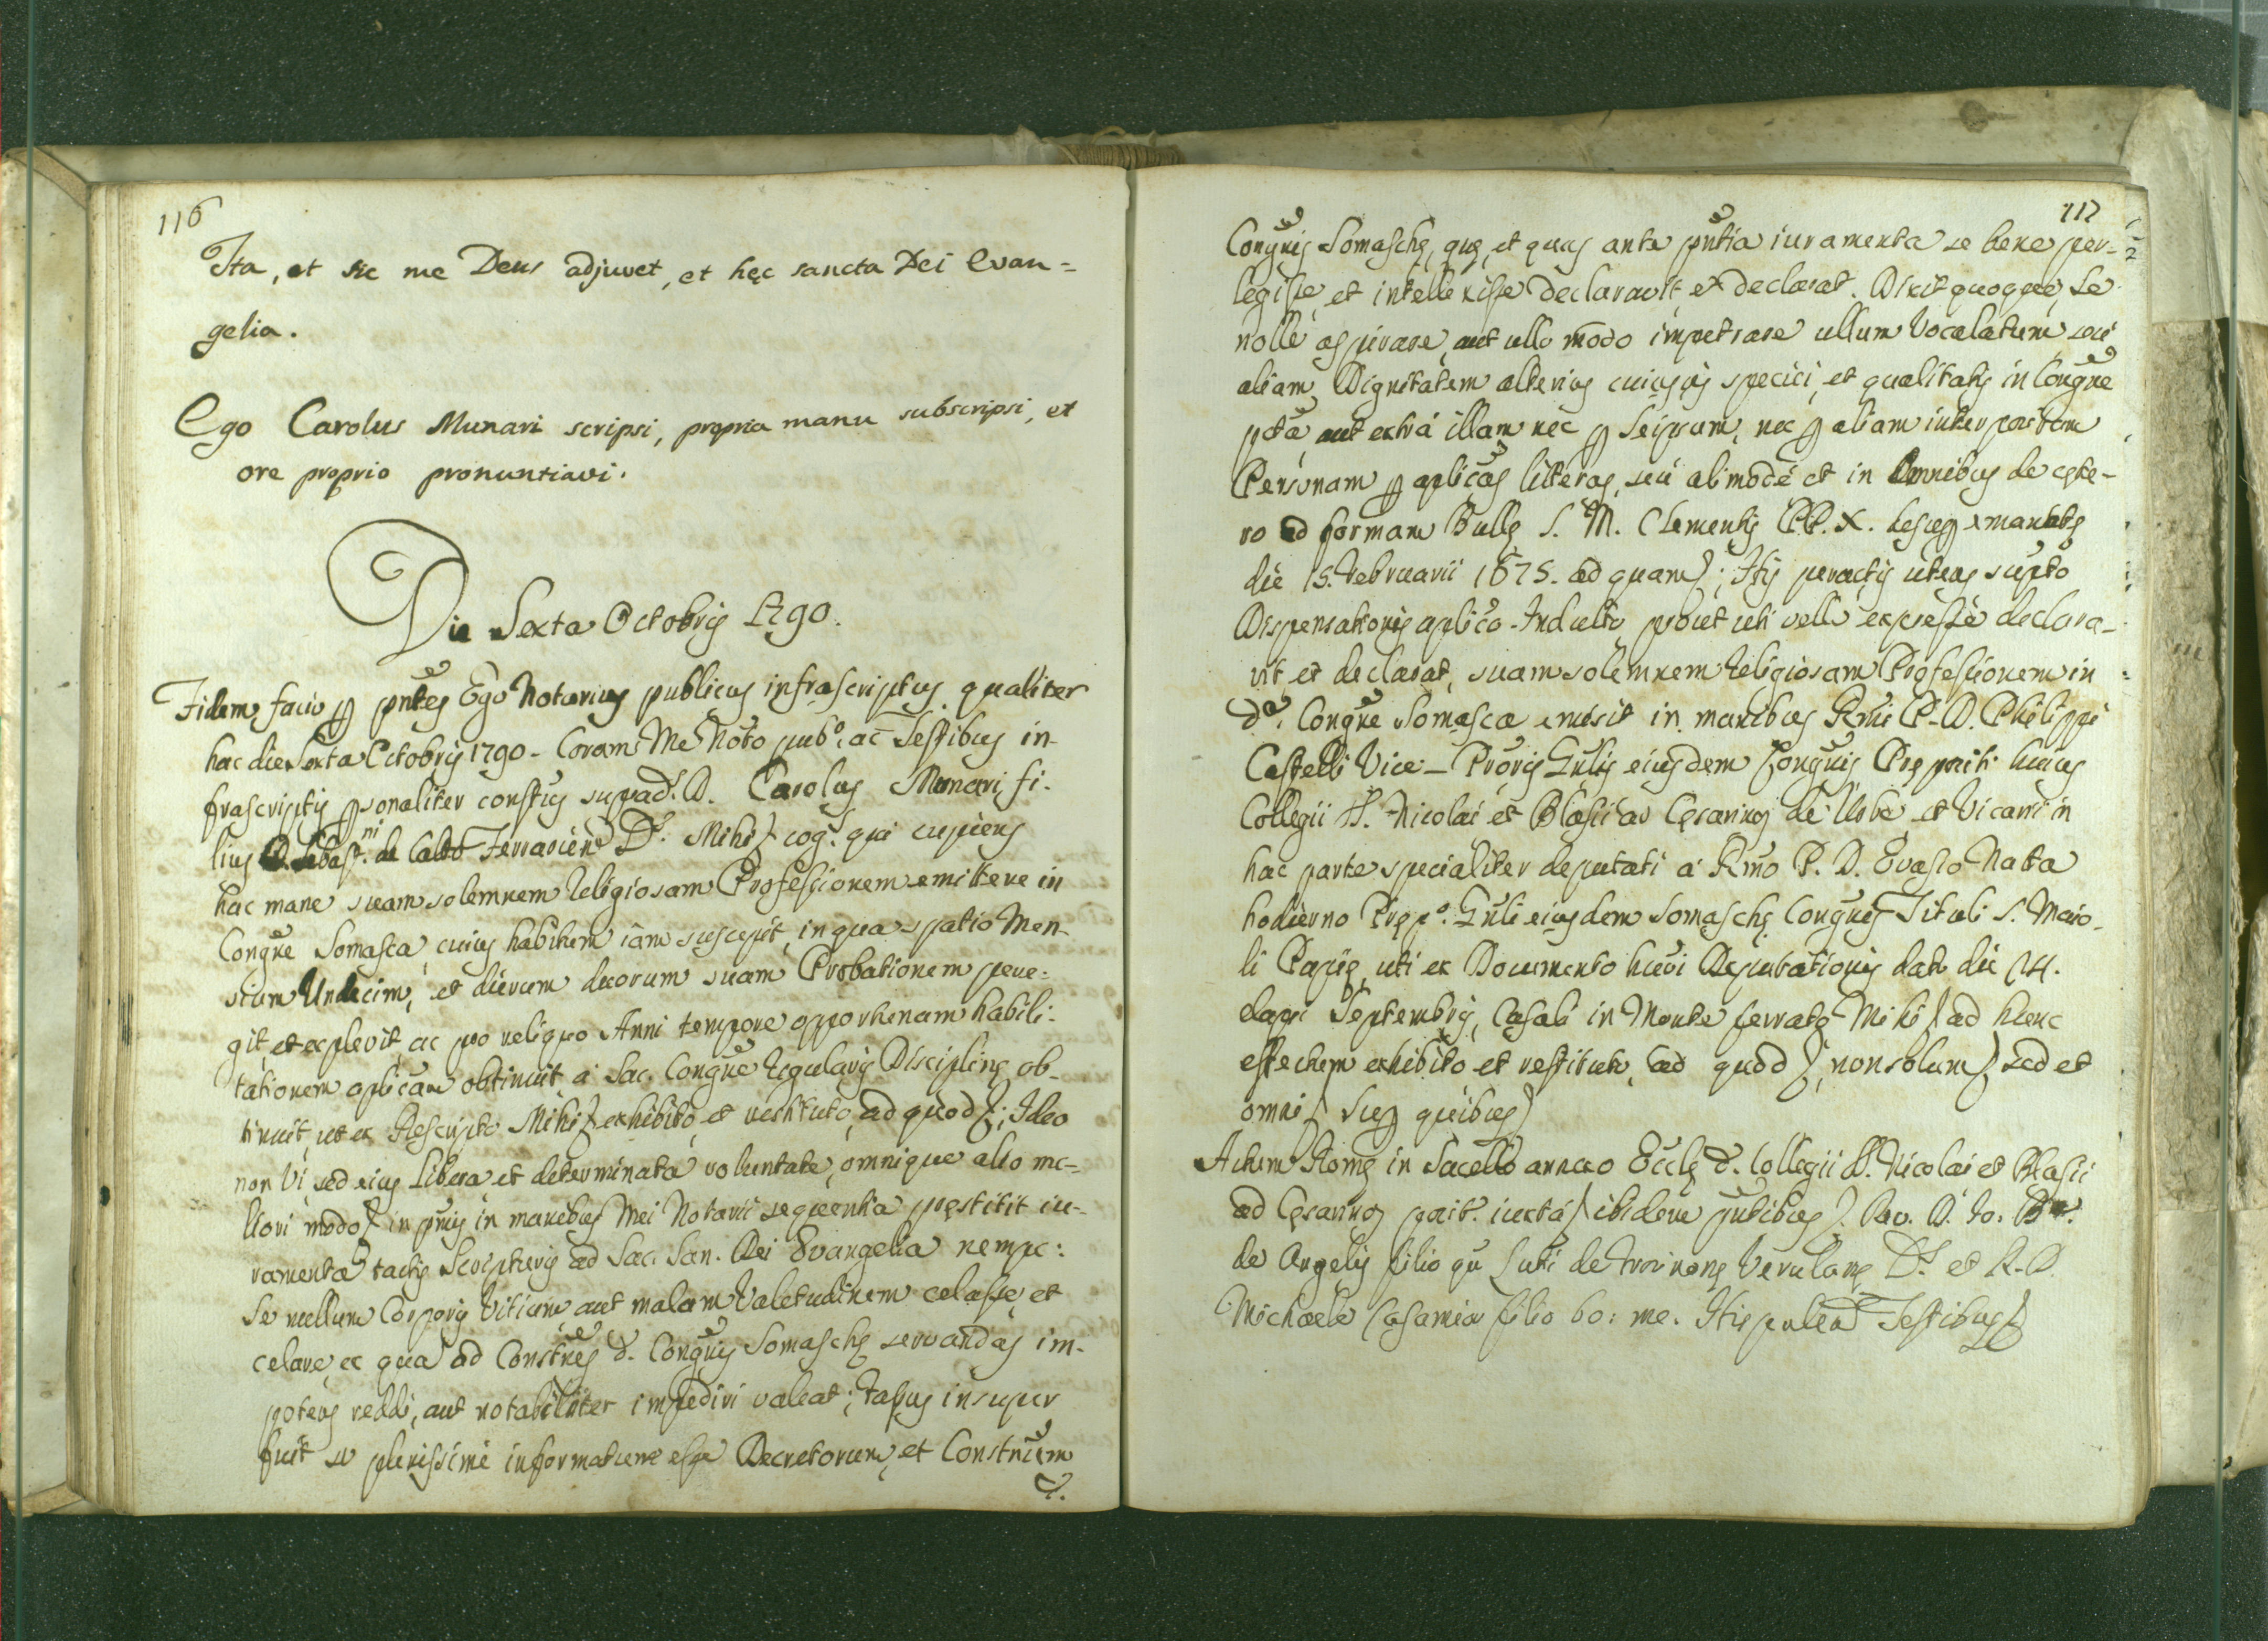 116
Ita, et sic me Deus adjuvet, et hęc sancta Dei Evan=
gelia.
Ego Carolus Munari scripsi, propria manu subscripsi, et
ore proprio pronuntiavi.
Die Sexta Octobris 1790.
Fidem facio p pñtes Ego Notarius publicus infrascriptus qualiter
hac die Sexta Octobris 1790 - Coram Me Noto pub.º, ac Testibus in-
frascriptis psonaliter constus supad. D. Carolus Munari fi-
lius Sebast.ni de Ferrarien D. Mihi cog. qui cupiens
hac mane suam solemnem Religiosam Professionem emittere in
Congñe Somasca, cuius habitum iam suscepit, in qua spatio Men-
sium Undecim, et dierum duorum suam Probationem pere-
git, et explevit, ac pro reliquo Anni tempore opportunam habili-
tationem aplicam obtinuit a Sac. Congñe Regularis Disciplinę ob-
tinuit, ut ex Rescripto Mihi exhibito, et restituto, ad quod; Ideo
non Vi, sed eius libera et determinata voluntate, omnique alio me-
liori modo in priis in manibus Mei Notarii sequentia pręstitit iu-
ramenta tactis Scripturis ad Sac. San. Dei Evangelia nempe:
Se nullum Corporis Vitium, aut malam Valetudinem celasse, et
celare ex qua ad Constñes d. Congñis Somaschę servandas im-
potens reddi, aut notabiliter impediri valeat; Fassus insuper
fuit se plenissime informatum esse Decretorum, et Constnum
d.
117
Congñis Somaschę, quę, et quas ante pñtia iuramenta se bene per-
legisse, et intellexisse declaravit, et declarat. Dixit quoque, se
nolle aspirare, aut ullo modo impetrare ullum Vocalatum, seu
aliam Dignitatem alterius cuiusvis speciei, et qualitatis in Congñe
pcta, aut extra illam nec p Seipsum, nec p aliam interpositam
Personam p aplicas litteras, seu alimode et in Omnibus de cęte-
ro ad formam Bullę S. M. Clementis PP. X. desup emanatę
die 15. Februarii 1675. ad quam; Itis peractis utens supto
Dispensationis aplico Indulto, prout uti velle expresse declara-
vit et declarat, suam solemnem Religiosam Professionem in
da. Congñe Somasca emisit in manibus Rmi P. D. Philippi
Castelli Vice-Prõris Gñlis eiusdem Congñis Prępositi huius
Collegii SS. Nicolai et Blasii ad Cęsarinos de Urbe et Vicarii in
hac parte specialiter deputati a Rmo P. D. Evasio Natta
hodierno Pręp.º Gñli eiusdem Somaschę Congñis Tituli S. Maio-
li Papię, uti ex Documento huiusmodi Deputationis dato die 14.
elapsi Septembris, Casali in Monte ferrato Mihi ad hunc
effectum exhibito et restituto, ad quod, non solum, sed et
omni sup quibus
Actum Romę in Sacello annexo Ecclę d. Collegii SS. Nicolai et Blasii
ad Cęsarinos posit. iuxta ibidem pñtibus Rev. D. Io. 
de Angelis filio qu de Verulanę D. et R. D.
Michaele Casamia filio bo: me. Testibus